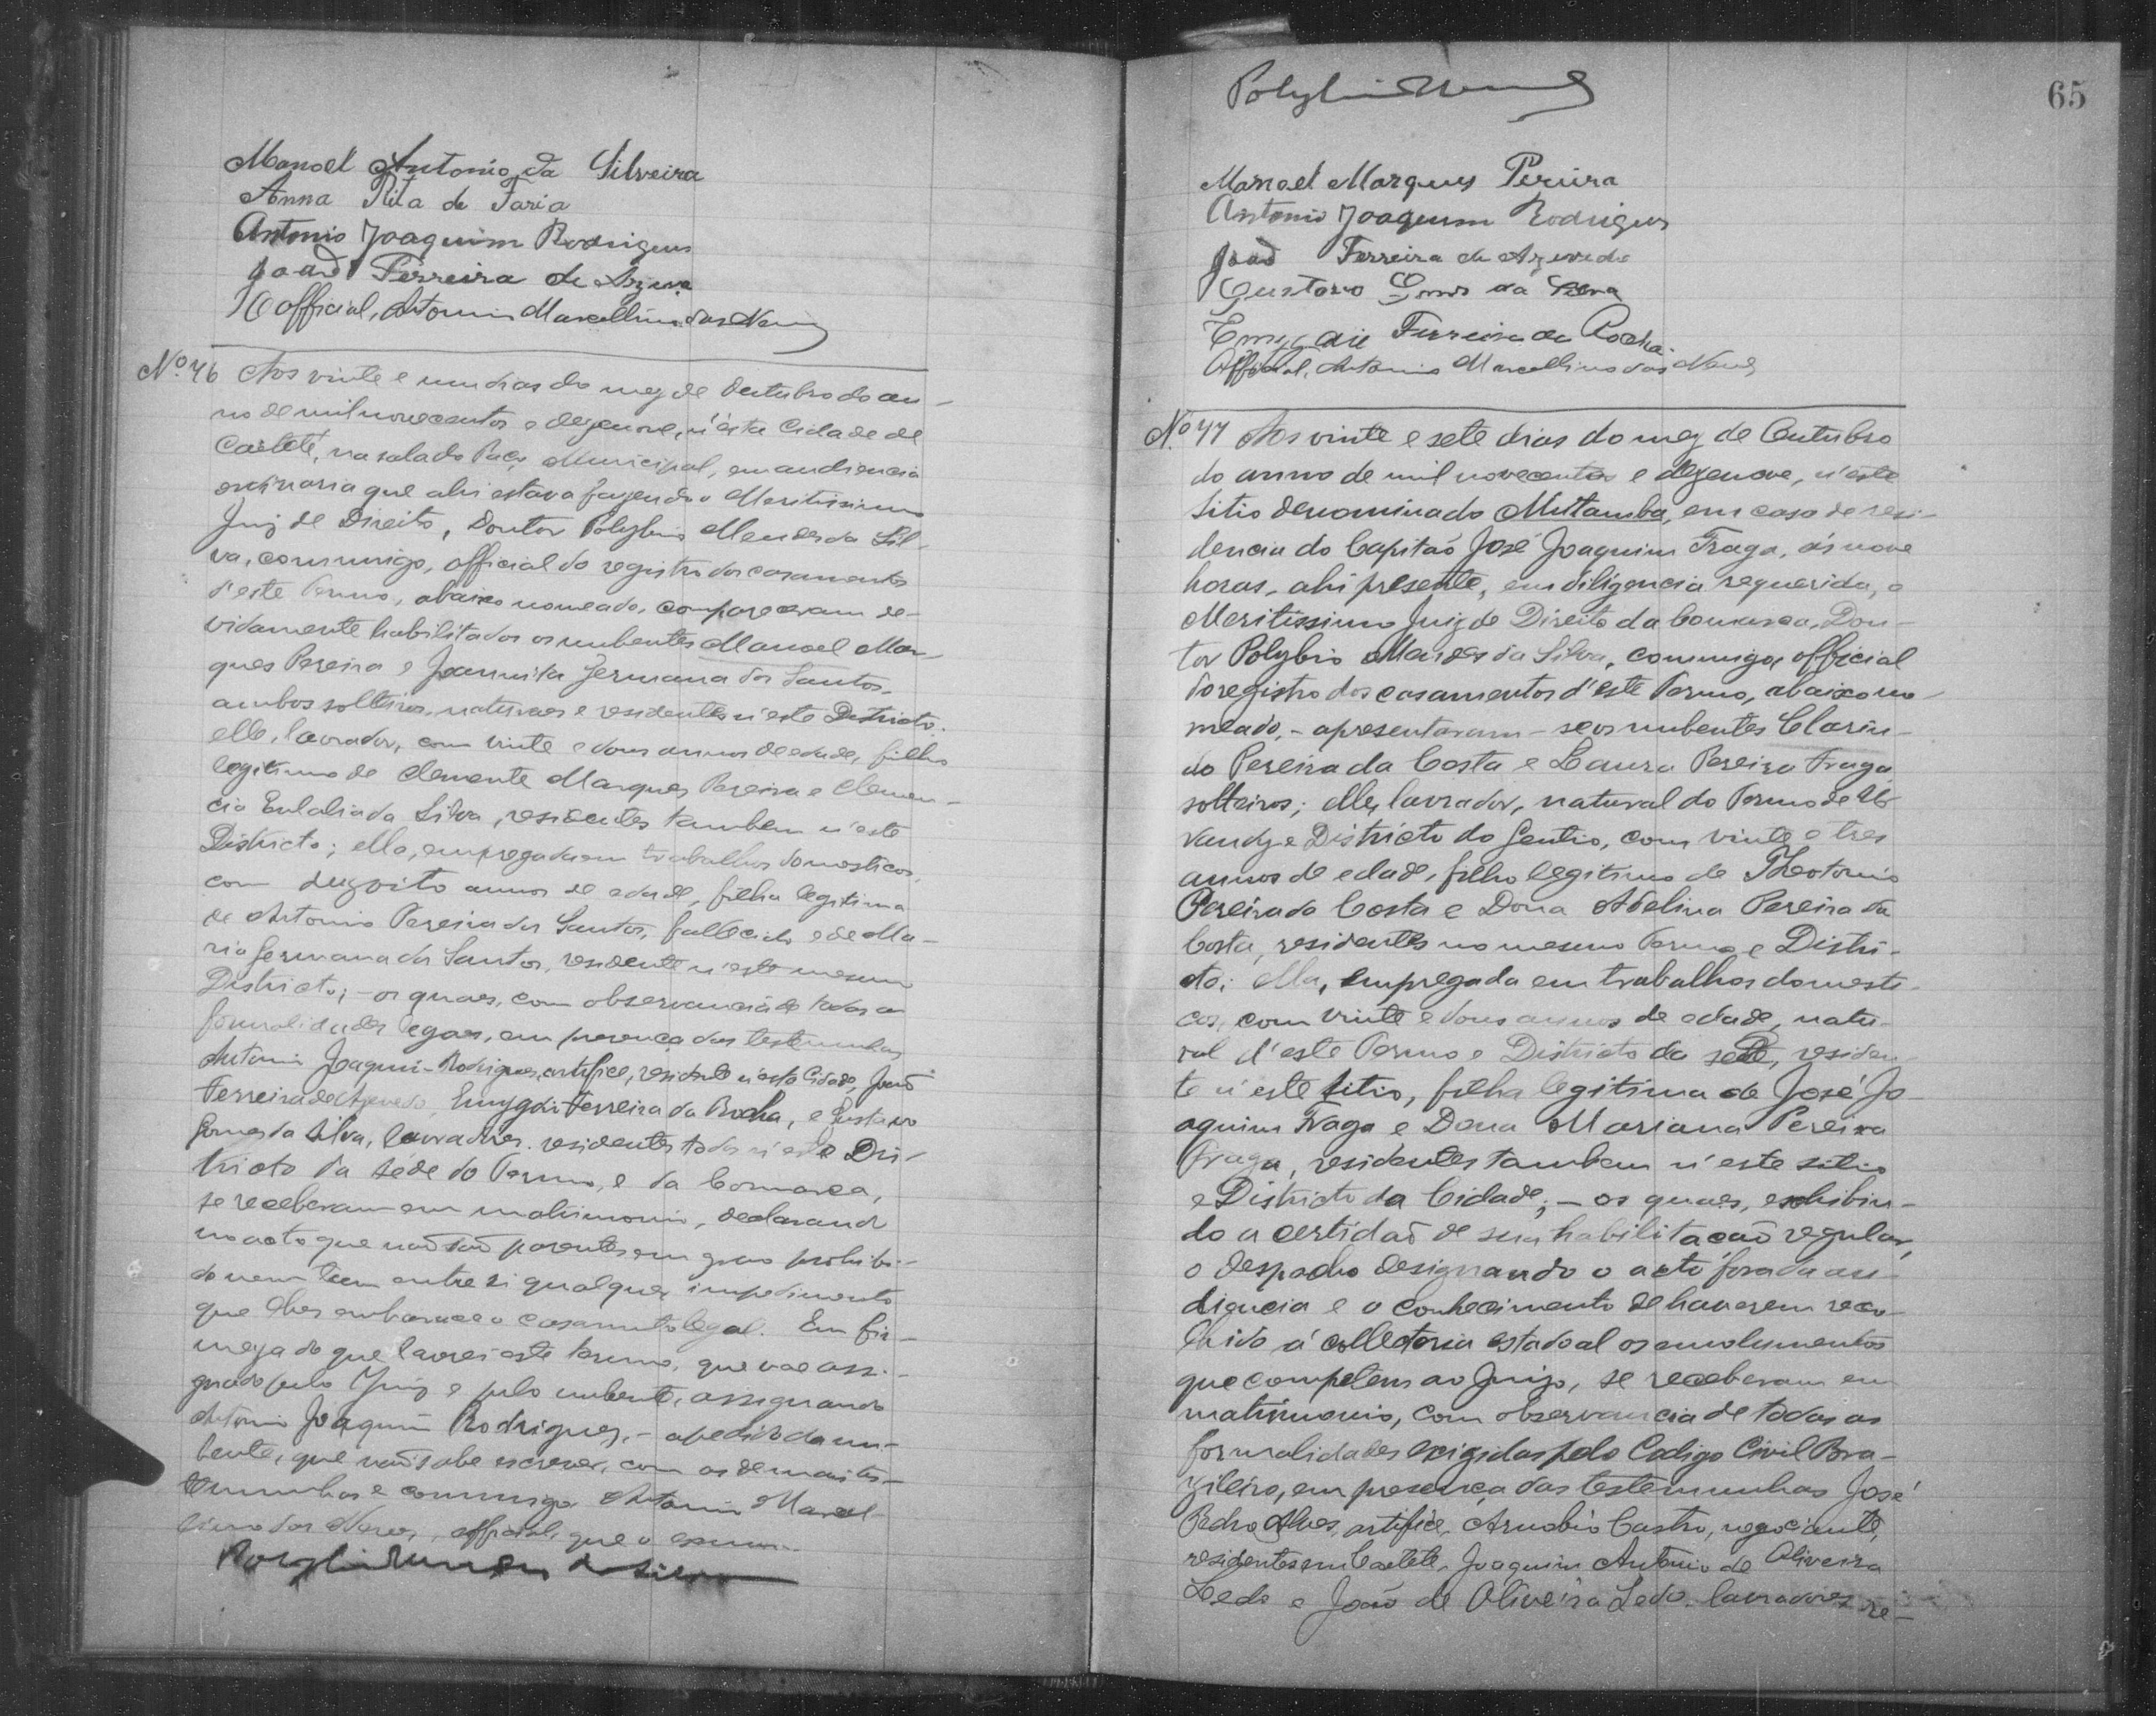 Manoel Antonio da Silveira
Anna Rita de Faria
Antonio Joaquim Rodrigues
João Ferreira de Azeve
O official, Antonio Marcellino das Neves
Nº 76 Aos vinte e um dias do mez de Outubro do an-
no de mil novecentos e dezenove, n'esta Cidade de
Caeteté, na sala do Paço Municipal, em audiencia
ordinaria que ahi estava fazendo o Meritissimo
Juiz de Direito, Doutor Polybio Mendes da Sil-
va, commigo, official do registro dos casamentos
d'este Termo, abaixo nomeado, compareceram de-
vidamente habilitados os nubentes Manoel Mar-
ques Pereira e Joannita Germana dos Santos,
ambos solteiros, naturaes e residentes n'este Districto;
elle, lavrador, com vinte e dous annos de edade, filho
legitimo de Clemente Marques Pereira e Clemen-
cia Eulalia da Silva, residentes tambem n'este
Districto; ella, empregada em trabalhos domesticos,
com dezoito annos de edade, filha legitima
de Antonio Pereira dos Santos, fallecido e de Ma-
ria Germana dos Santos, residente n'este mesmo
Districto; - os quaes, com observancia de todas as
formalidades legaes, em presença das testemunhas
Antonio Joaquim Rodrigues, artifice, residente n'esta Cidade, João
Ferreira de Azevedo, Emygdio Ferreira da Rocha, e Gustavo
Gomes da Silva, lavradores, residentes todos n'este Dis-
tricto da séde do Termo, e da Comarca,
se receberam em matrimonio, declarando
no acto que não são parentes em grau prohibi-
do nem teem entre si qualquer impedimento
que lhes embarace o casamento legal. Em fir-
meza do que lavrei este termo, que vae assi-
gnado pelo Juiz e pelo nubente, assignando
Antonio Joaquim Rodrigues, - a pedido da nu-
bente, que não sabe escrever, com as demais tes-
temunhas e commigo Antonio Marcel-
lino das Neves, official, que o escrevi.
Polybio Mendes da Silva
65
Polybio Mendes
Manoel Marques Pereira
Antonio Joaquim Rodrigues
João Ferreira de Azevedo
Gustavo Gomes da Silva
Emygdie Ferreira da Rocha.
Official, Antonio Marcellino das Neves
Nº 77 Aos vinte e sete dias do mez de Outubro
do anno de mil novecentos e dezenove, n'este
sitio denominado Mutamba, em casa de resi-
dencia do Capitão José Joaquim Fraga, ás nove
horas, ahi presente, em diligencia requerida, o
Meritissimo Juiz de Direito da Comarca, Dou-
tor Polybio Mendes da Silva, commigo, official
do registro dos casamentos d'este Termo, abaixo no-
meado, - apresentaram-se os nubentes Clarin-
do Pereira da Costa e Laura Pereira Fraga
solteiros; elle, lavrador, natural do Termo de Ur-
vandy e Districto do Gentio, com vinte e tres
annos de edade, filho legitimo de Theotonio
Pereira da Costa e Dona Adelina Pereira da
Costa, residentes no mesmo Termo e Distri-
cto; ella, empregada em trabalhos domesti-
cos, com vinte e dous annos de edade, natu-
ral d'este Termo e Districto da séde, residen-
te n'este sitio, filha legitima de José Jo-
aquim Fraga e Dona Mariana Pereira
Fraga, residentes tambem n'este sitio
e Districto da Cidade; - os quaes, exhibin-
do a certidão de sua habilitação regular,
o despacho designando o acto fora da au-
diencia e o conhecimento de haverem reco-
lhido á collectoria estadoal os emolumentos
que competem ao Juizo, se receberam em
matrimonio, com observancia de todas as
formalidades exigidas pelo Codigo Civil Bra-
zileiro, em presença das testemunhas José
Pedro Alves, artifice, Arnobio Castro, negociante,
residentes em Caeteté, Joaquim Antonio de Oliveira
Ledo e João de Oliveira Ledo, lavradores re-